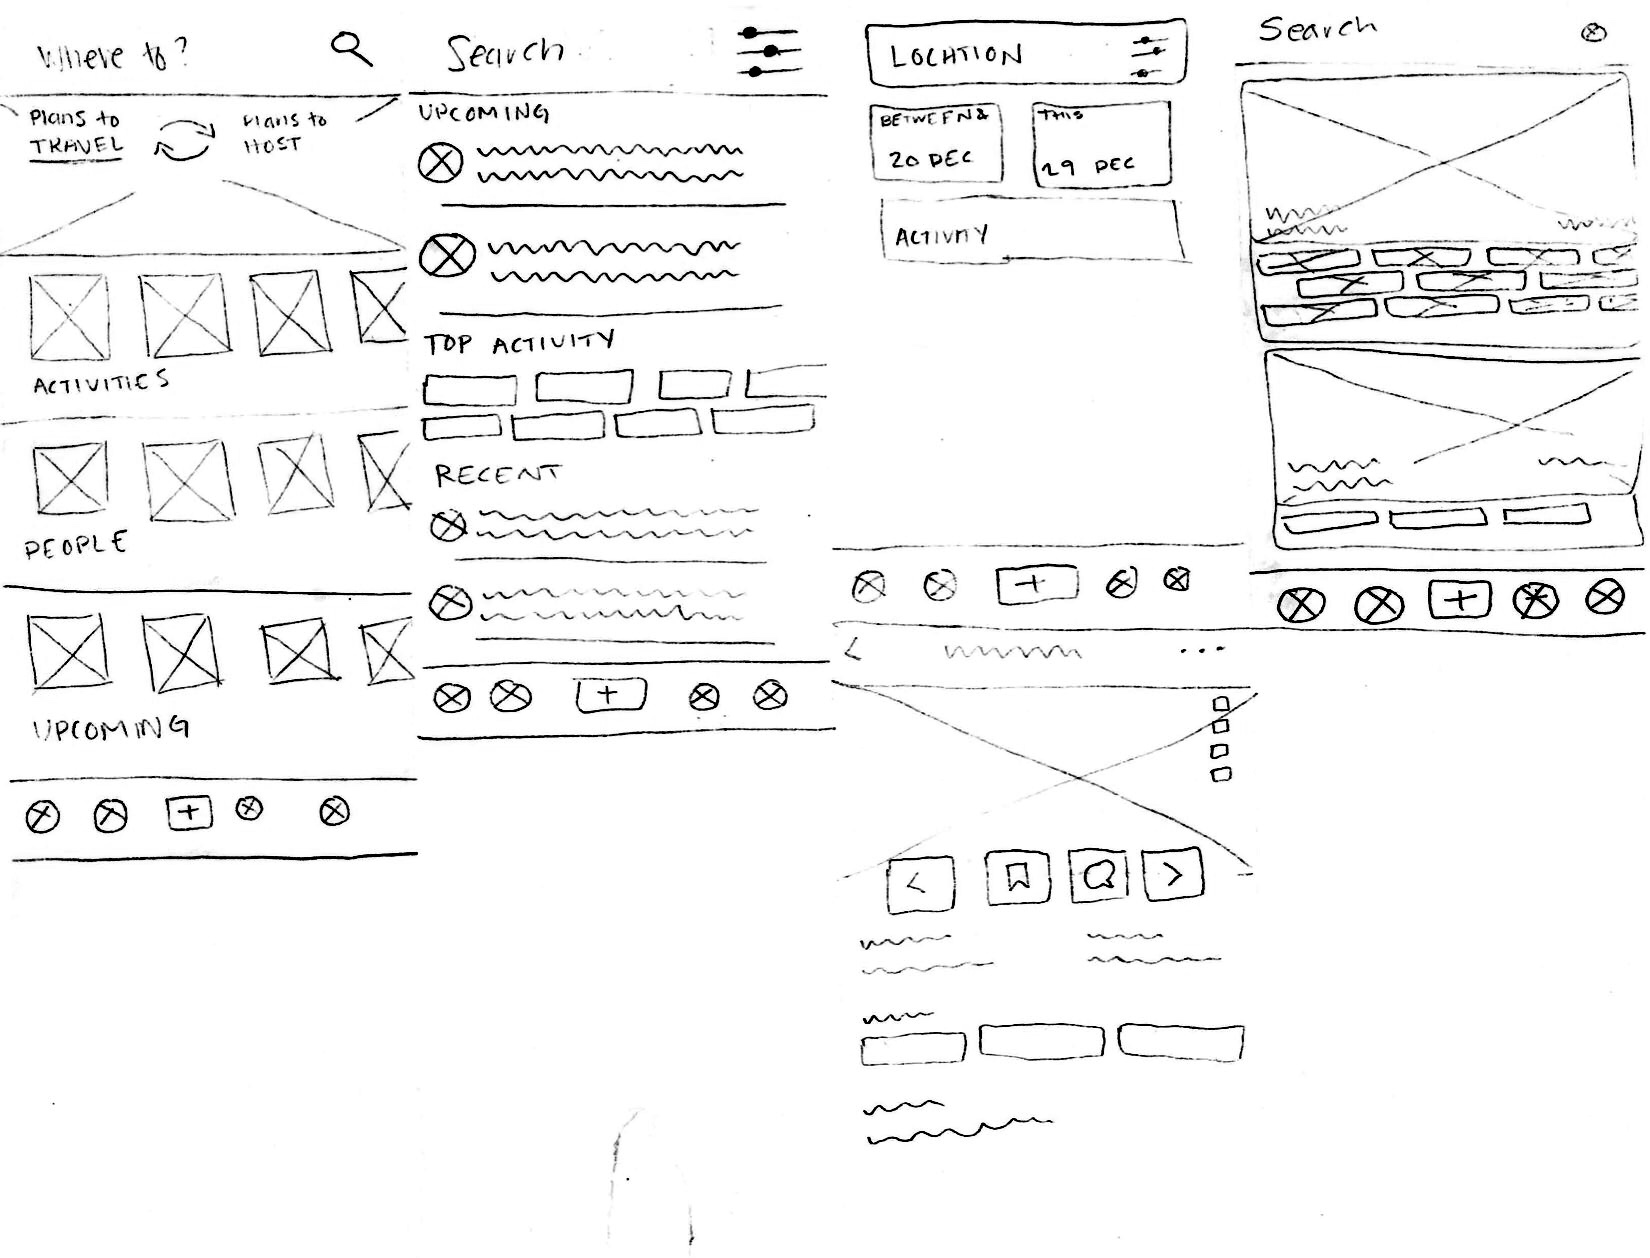 Where to?
Plans to
TRAVEL
Plans to
HOST
ACTIVITIES
PEOPLE
UPCOMING
Search
UPCOMING
TOP ACTIVITY
RECENT
LOCATION
BETWEEN &
20 DEC
THIS
29 DEC
ACTIVITY
Search